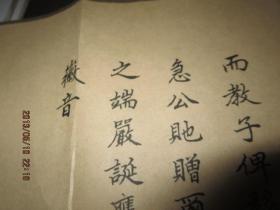 而教子俾
急公貤贈
之端嚴誕膺
徽音
2013/06/10 22:10